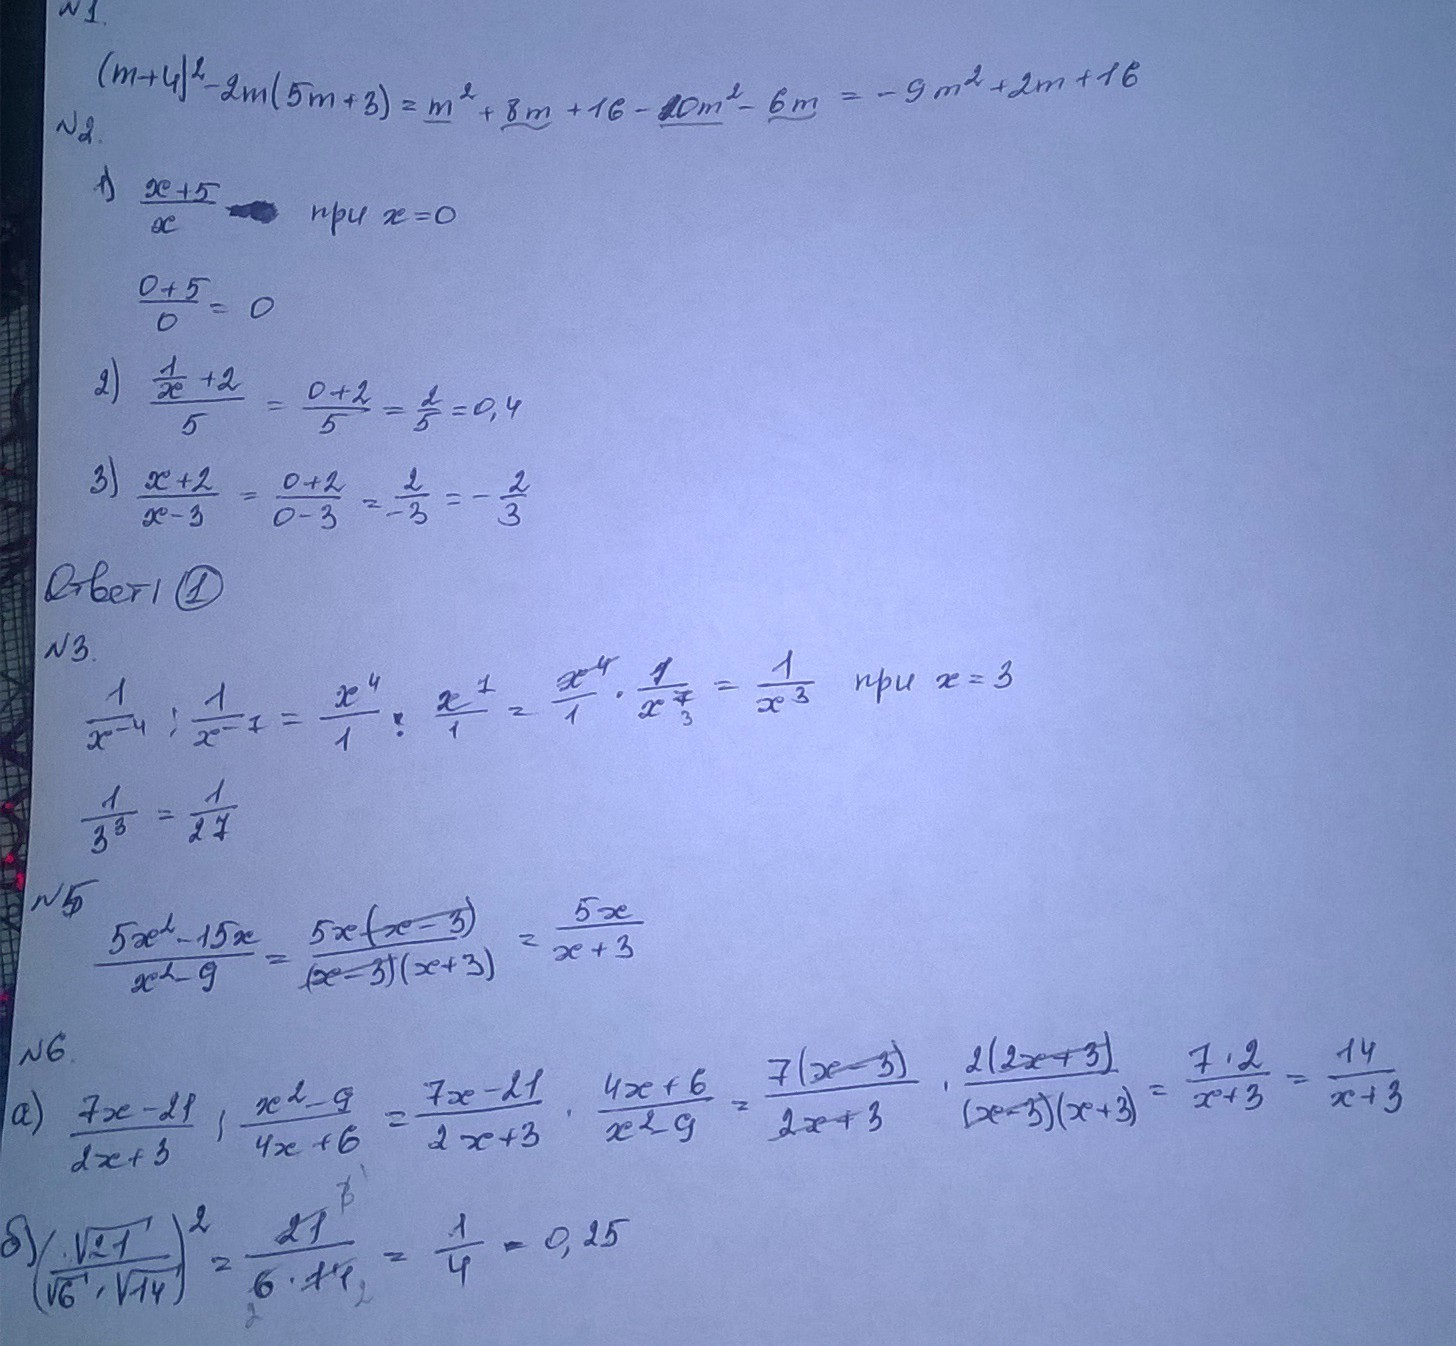 №1.
(m+4)² - 2m(5m+3) = m² + 8m + 16 - 10m² - 6m = -9m² + 2m + 16
№2.
1) (x+5)/x при x=0
(0+5)/0 = 0
2) (1/x + 2)/5 = (0+2)/5 = 2/5 = 0,4
3) (x+2)/(x-3) = (0+2)/(0-3) = 2/-3 = -2/3
Ответ: 1
№3.
1/x⁻⁴ : 1/x⁻⁷ = x⁴/1 : x⁷/1 = x⁴/1 · 1/x⁷ = 1/x³ при x=3
1/3³ = 1/27
№5
(5x²-15x)/(x²-9) = 5x(x-3)/((x-3)(x+3)) = 5x/(x+3)
№6.
а) (7x-21)/(2x+3) : (x²-9)/(4x+6) = (7x-21)/(2x+3) · (4x+6)/(x²-9) = 7(x-3)/(2x+3) · 2(2x+3)/((x-3)(x+3)) = 7·2/(x+3) = 14/(x+3)
б) (√21/(√6·√14))² = 21/(6·14) = 1/4 = 0,25